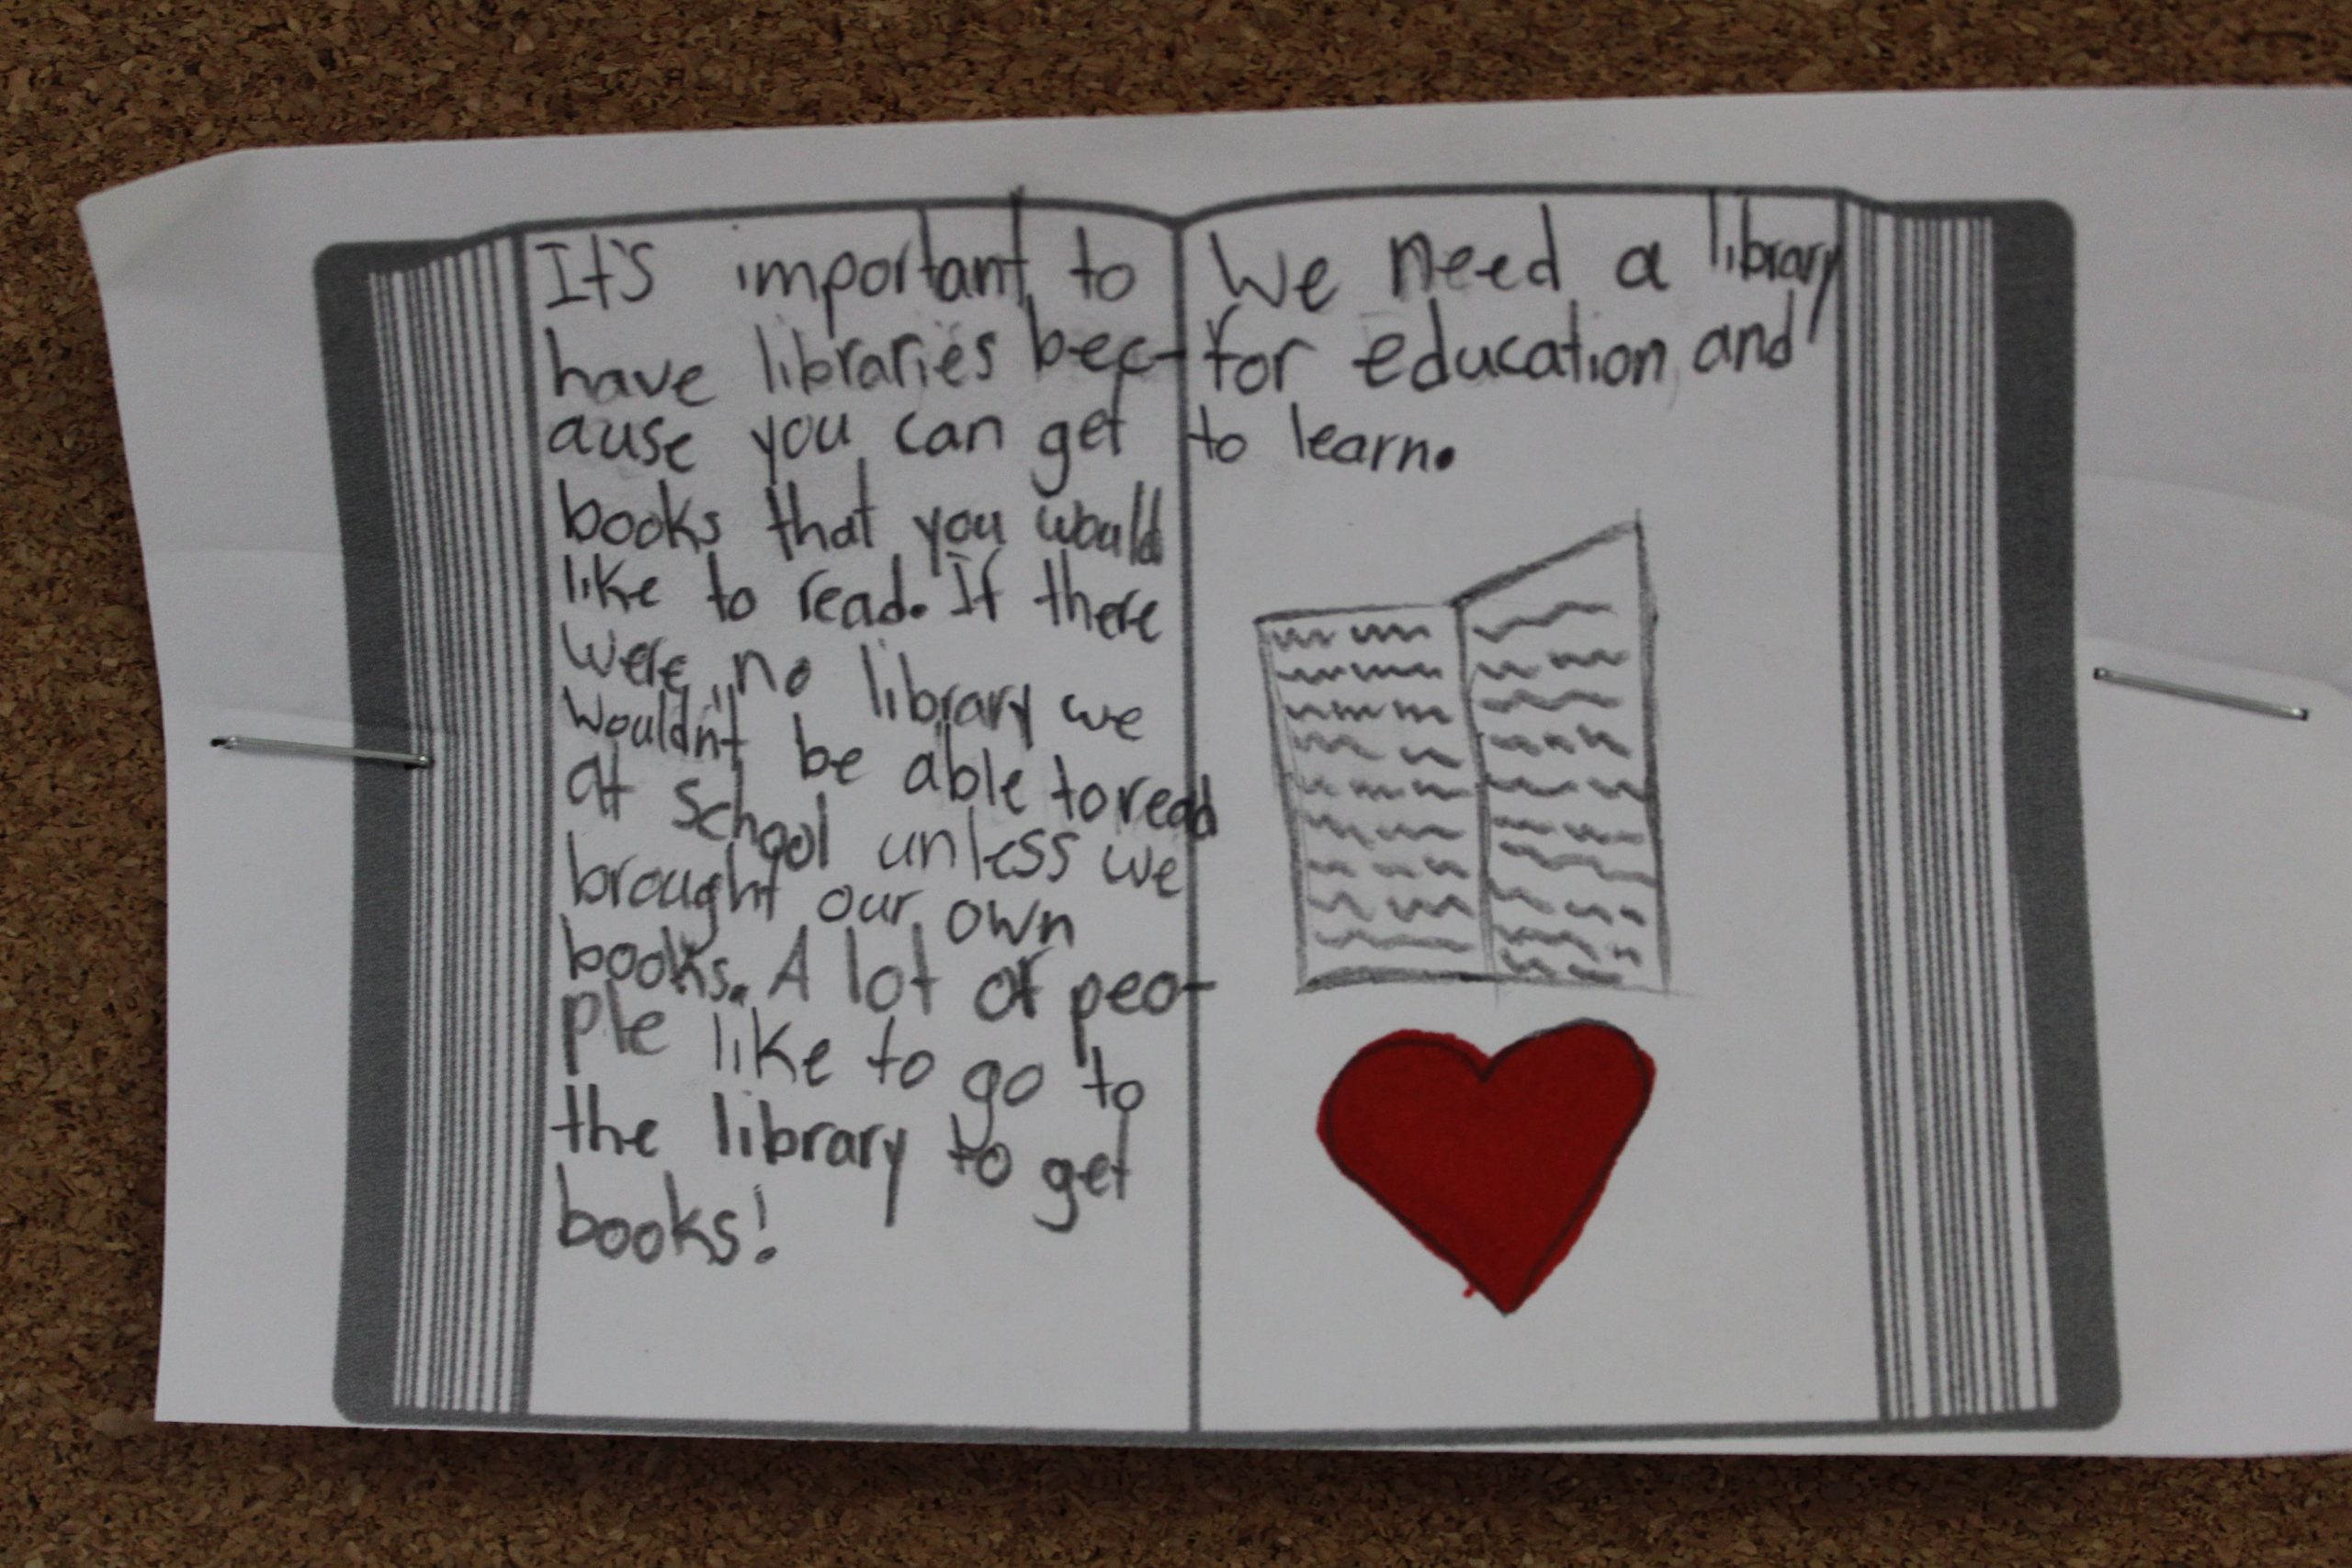 It's important to
have libraries bec-
ause you can get
books that you would
like to read. If there
were no library we
wouldn't be able to read
at school unless we
brought our own
books. A lot of peo-
ple like to go to
the library to get
books!
We need a library
for education and
to learn.